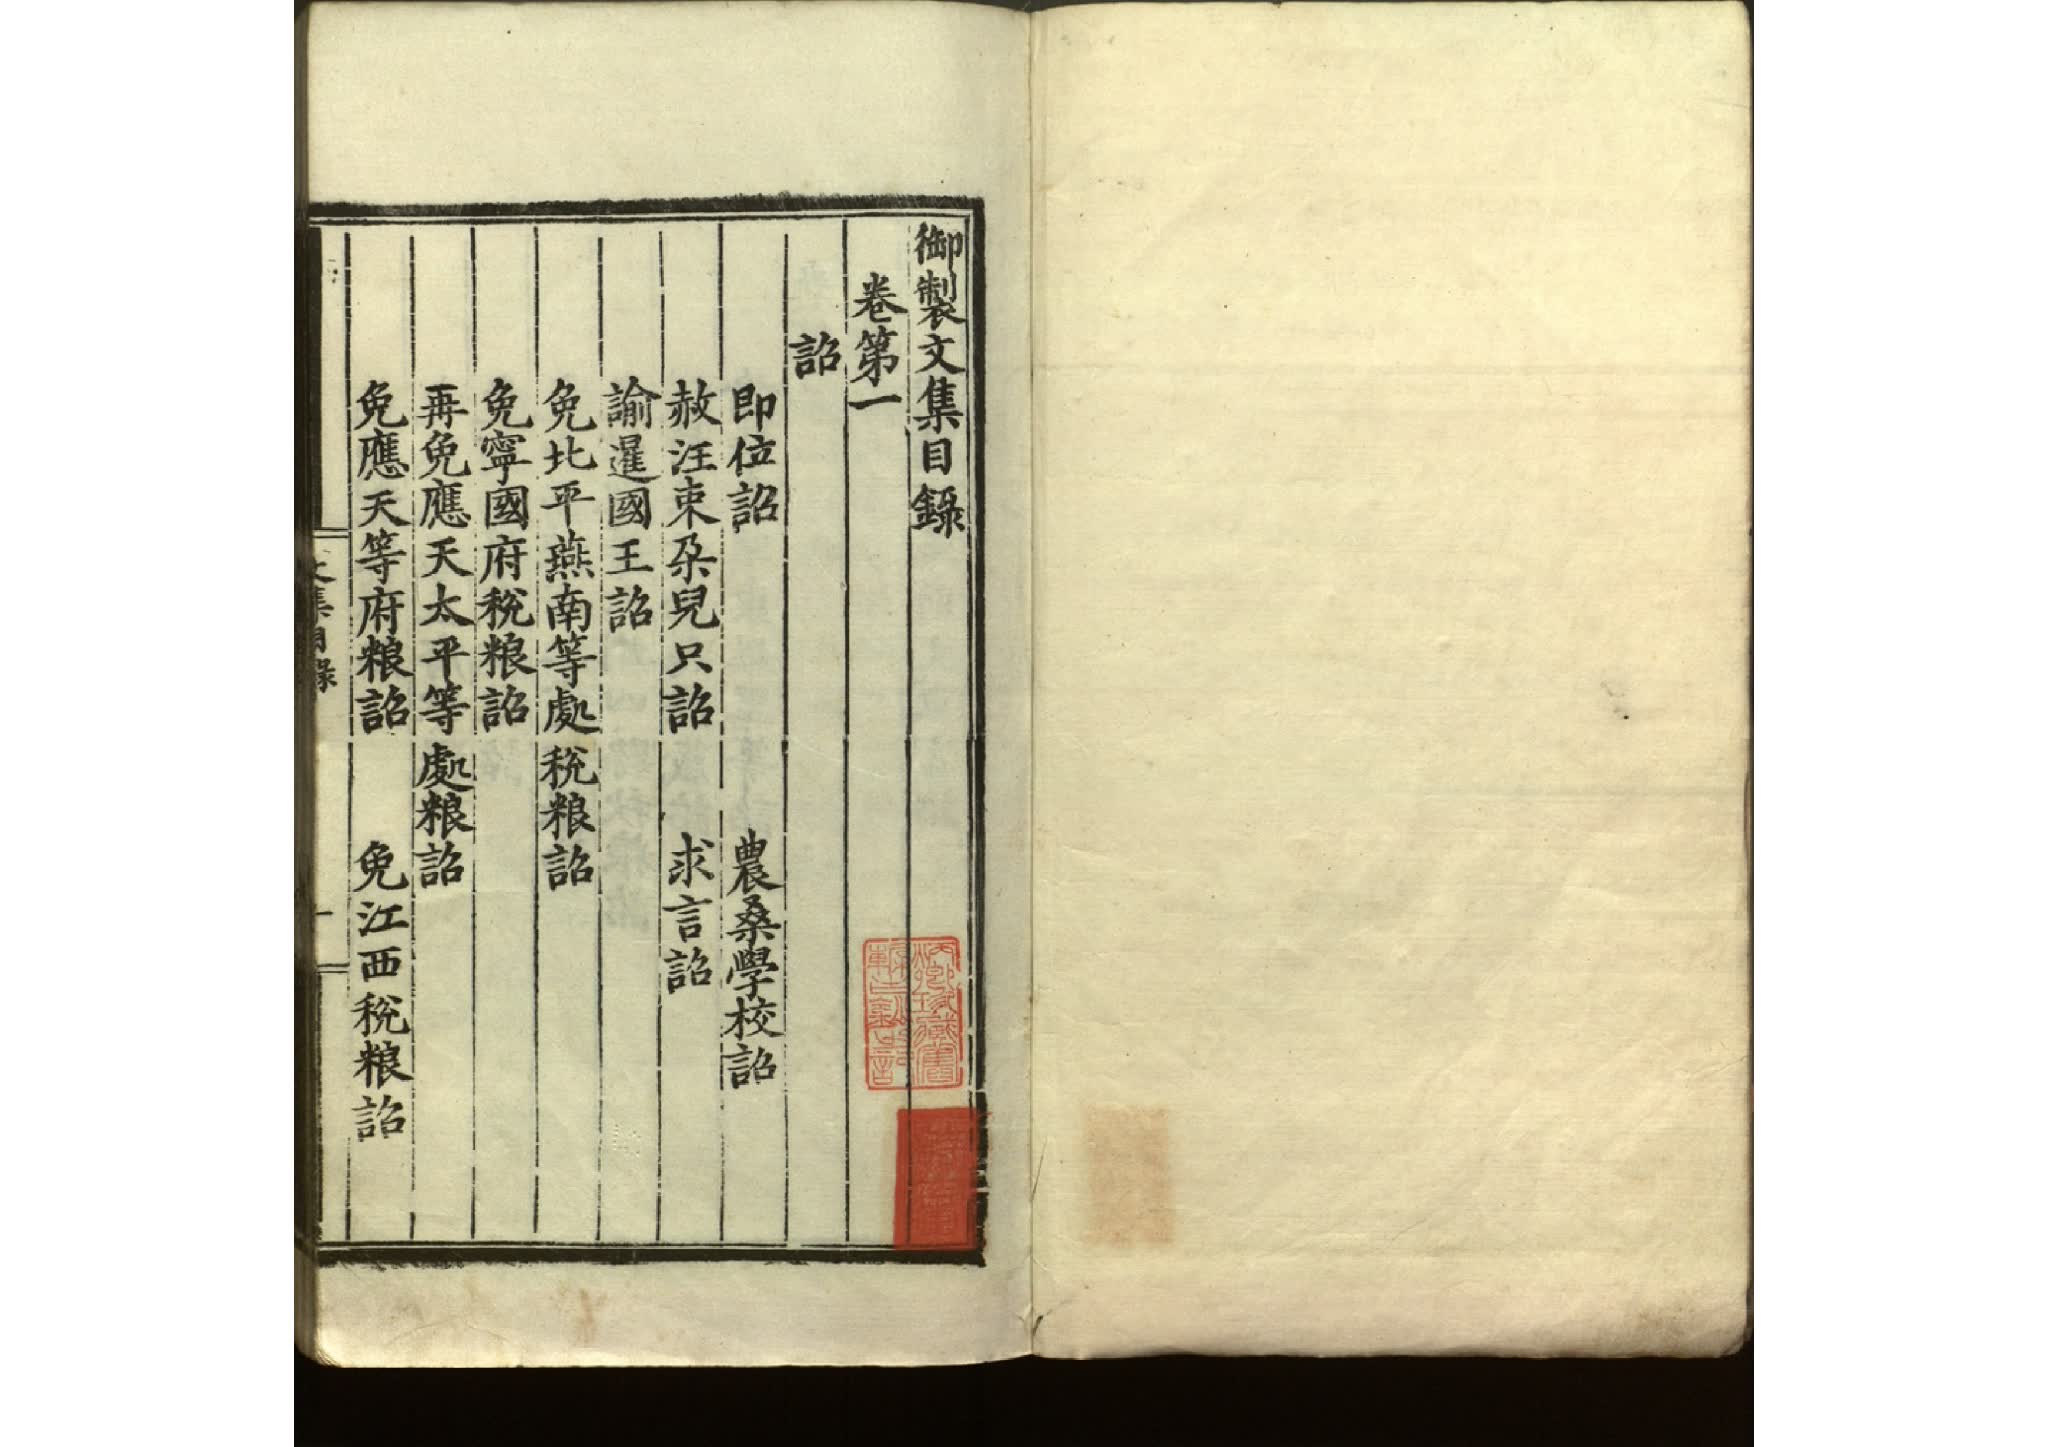 御製文集目録
卷第一
詔
即位詔 農桑學校詔
赦汪束朶兒只詔 求言詔
諭暹國王詔
免北平燕南等處税粮詔
免寧國府税粮詔
再免應天太平等處粮詔
免應天等府粮詔 免江西税粮詔
文集目録 一